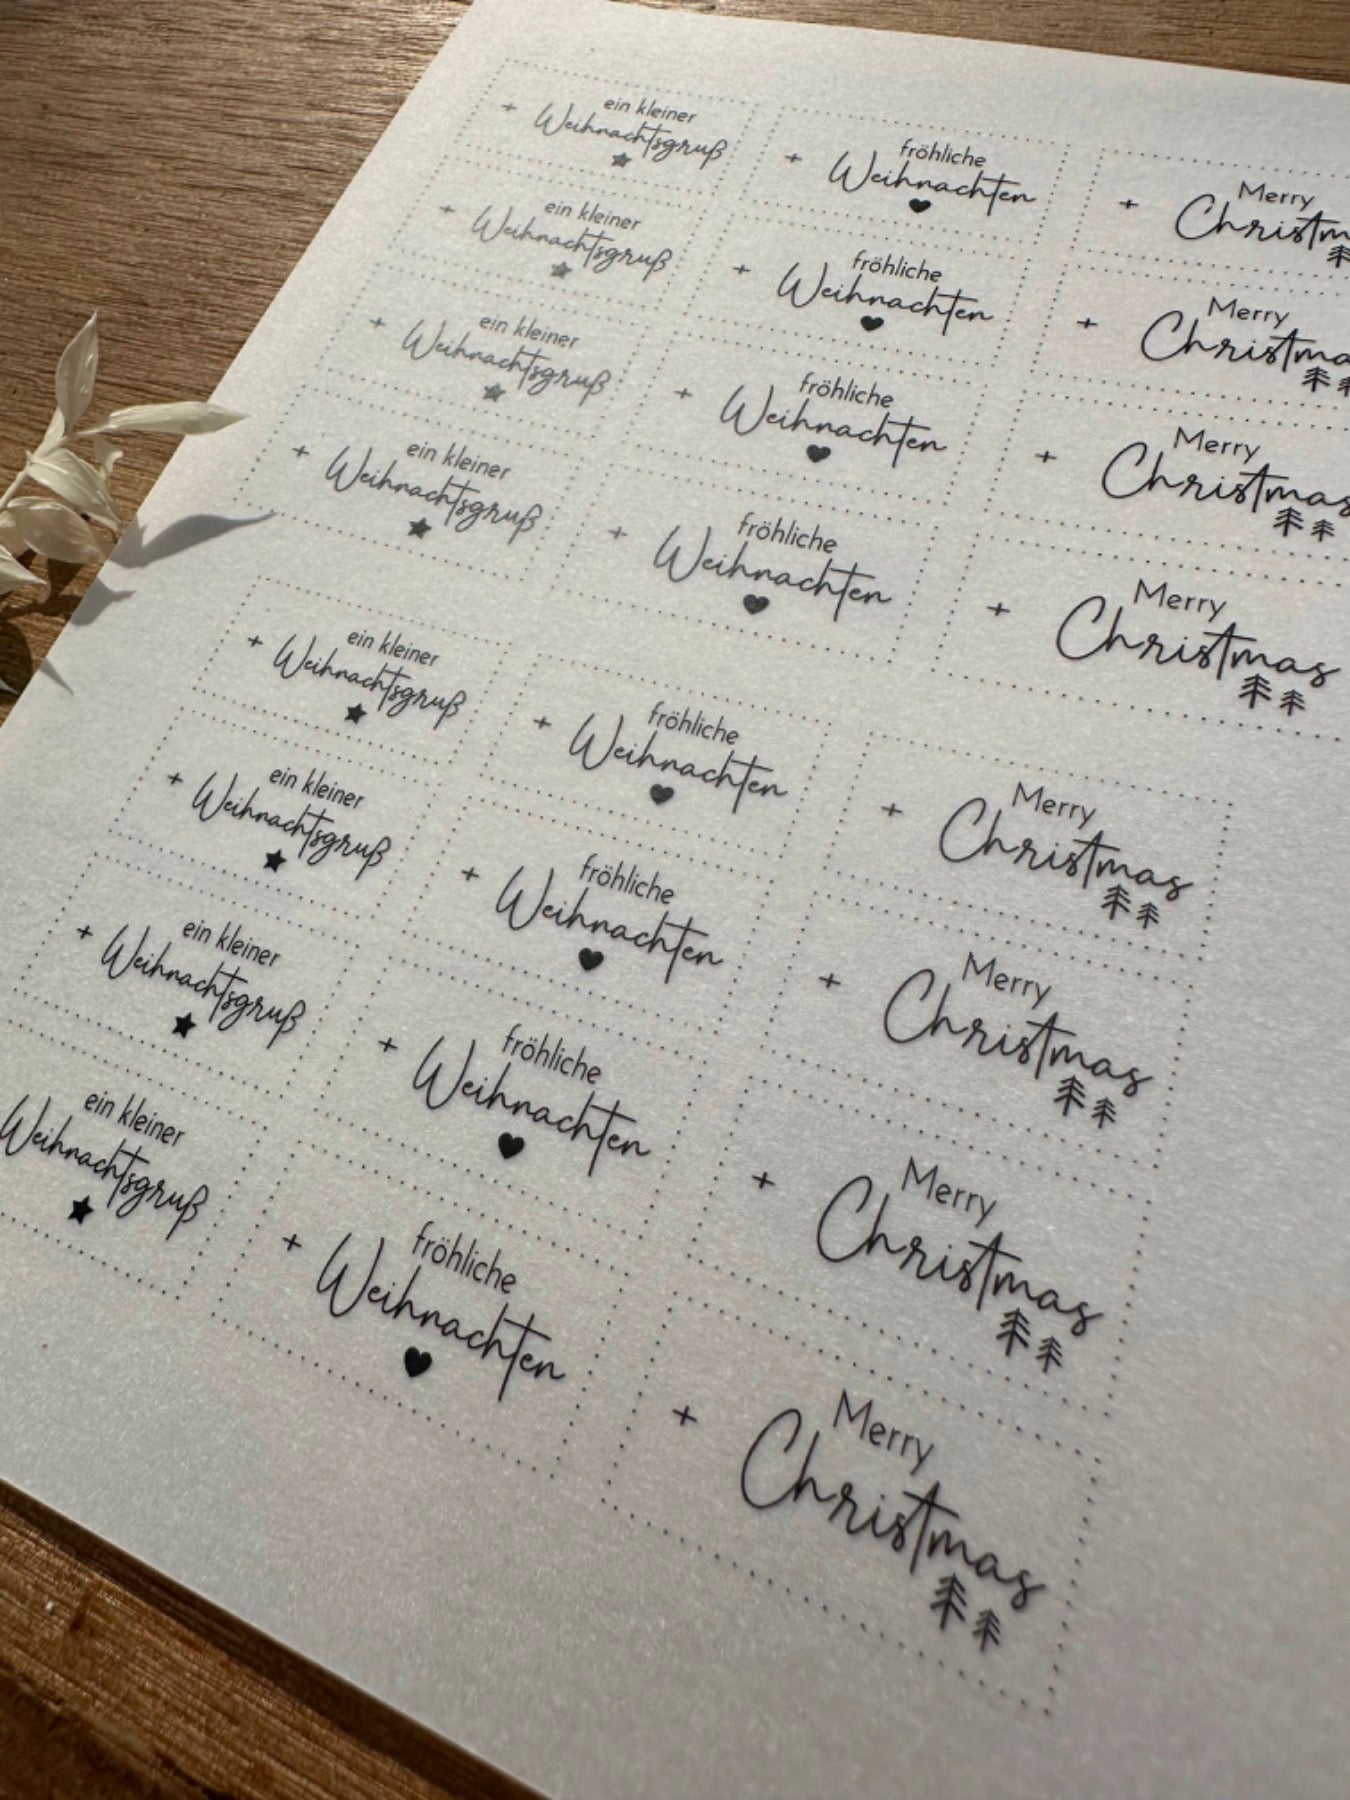 ein kleiner
Weihnachtsgruß
fröhliche
Weihnachten
Merry
Christm
ein kleiner
Weihnachtsgruß
fröhliche
Weihnachten
Merry
Christma
ein kleiner
Weihnachtsgruß
fröhliche
Weihnachten
Merry
Christmas
ein kleiner
Weihnachtsgruß
fröhliche
Weihnachten
Merry
Christmas
ein kleiner
Weihnachtsgruß
fröhliche
Weihnachten
Merry
Christmas
ein kleiner
Weihnachtsgruß
fröhliche
Weihnachten
Merry
Christmas
ein kleiner
Weihnachtsgruß
fröhliche
Weihnachten
Merry
Christmas
ein kleiner
Weihnachtsgruß
fröhliche
Weihnachten
Merry
Christmas